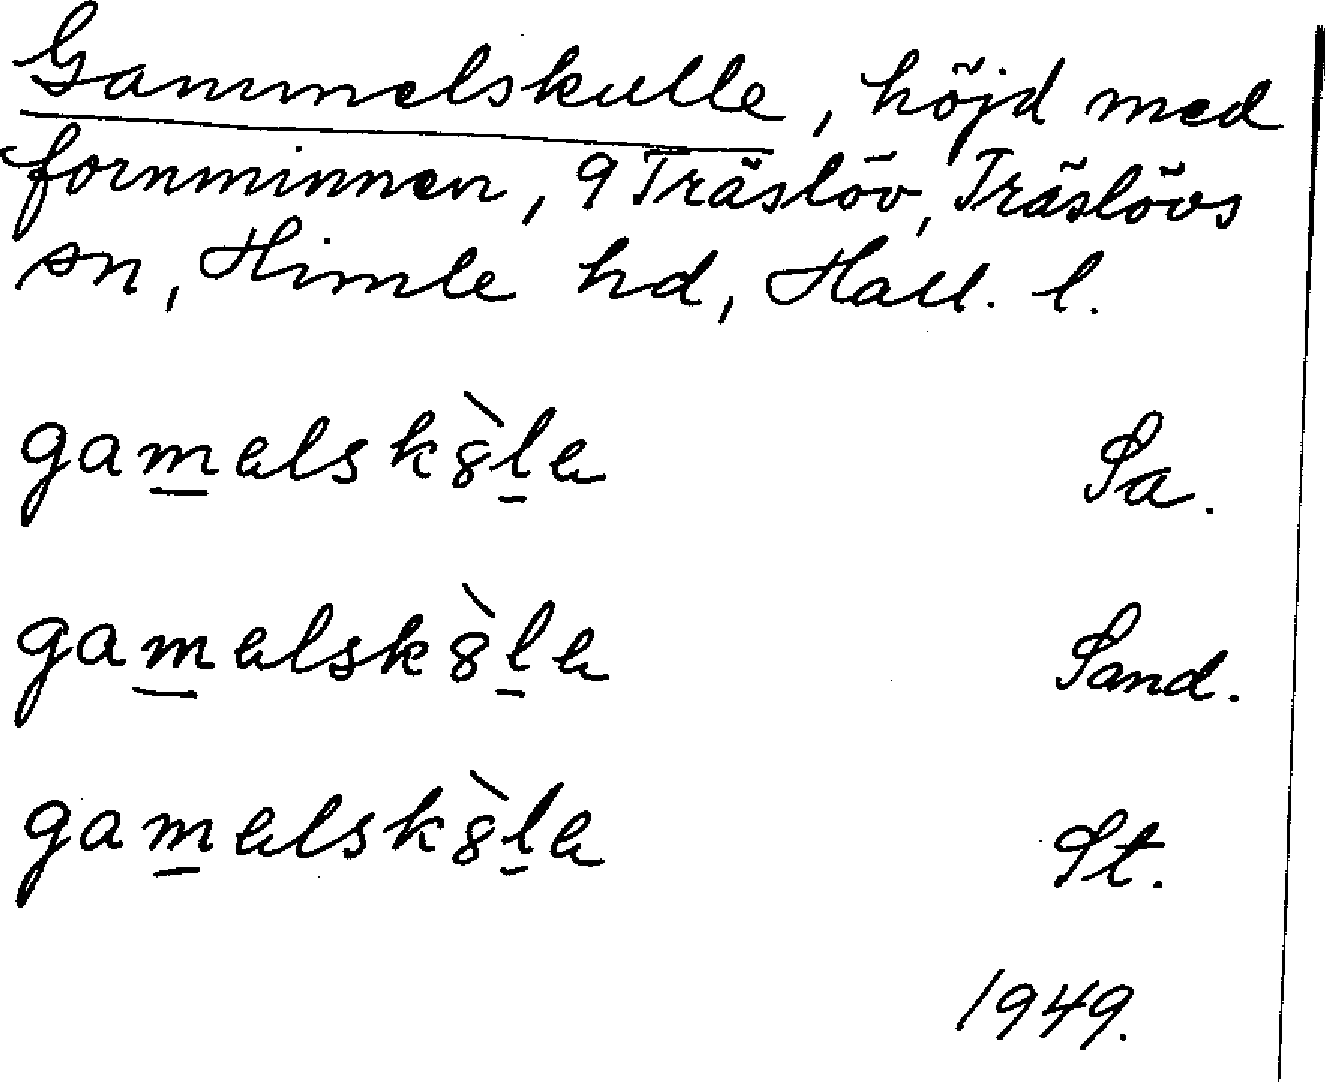 Gammelskulle, höjd med
fornminnen, 9 Träslöv, Träslövs
sn, Himle hd, Hall. l.
gam̲əlsk8̀l̲ə Sa.
gam̲əlsk8̀l̲ə Sand.
gam̲əlsk8̀l̲ə St.
1949.